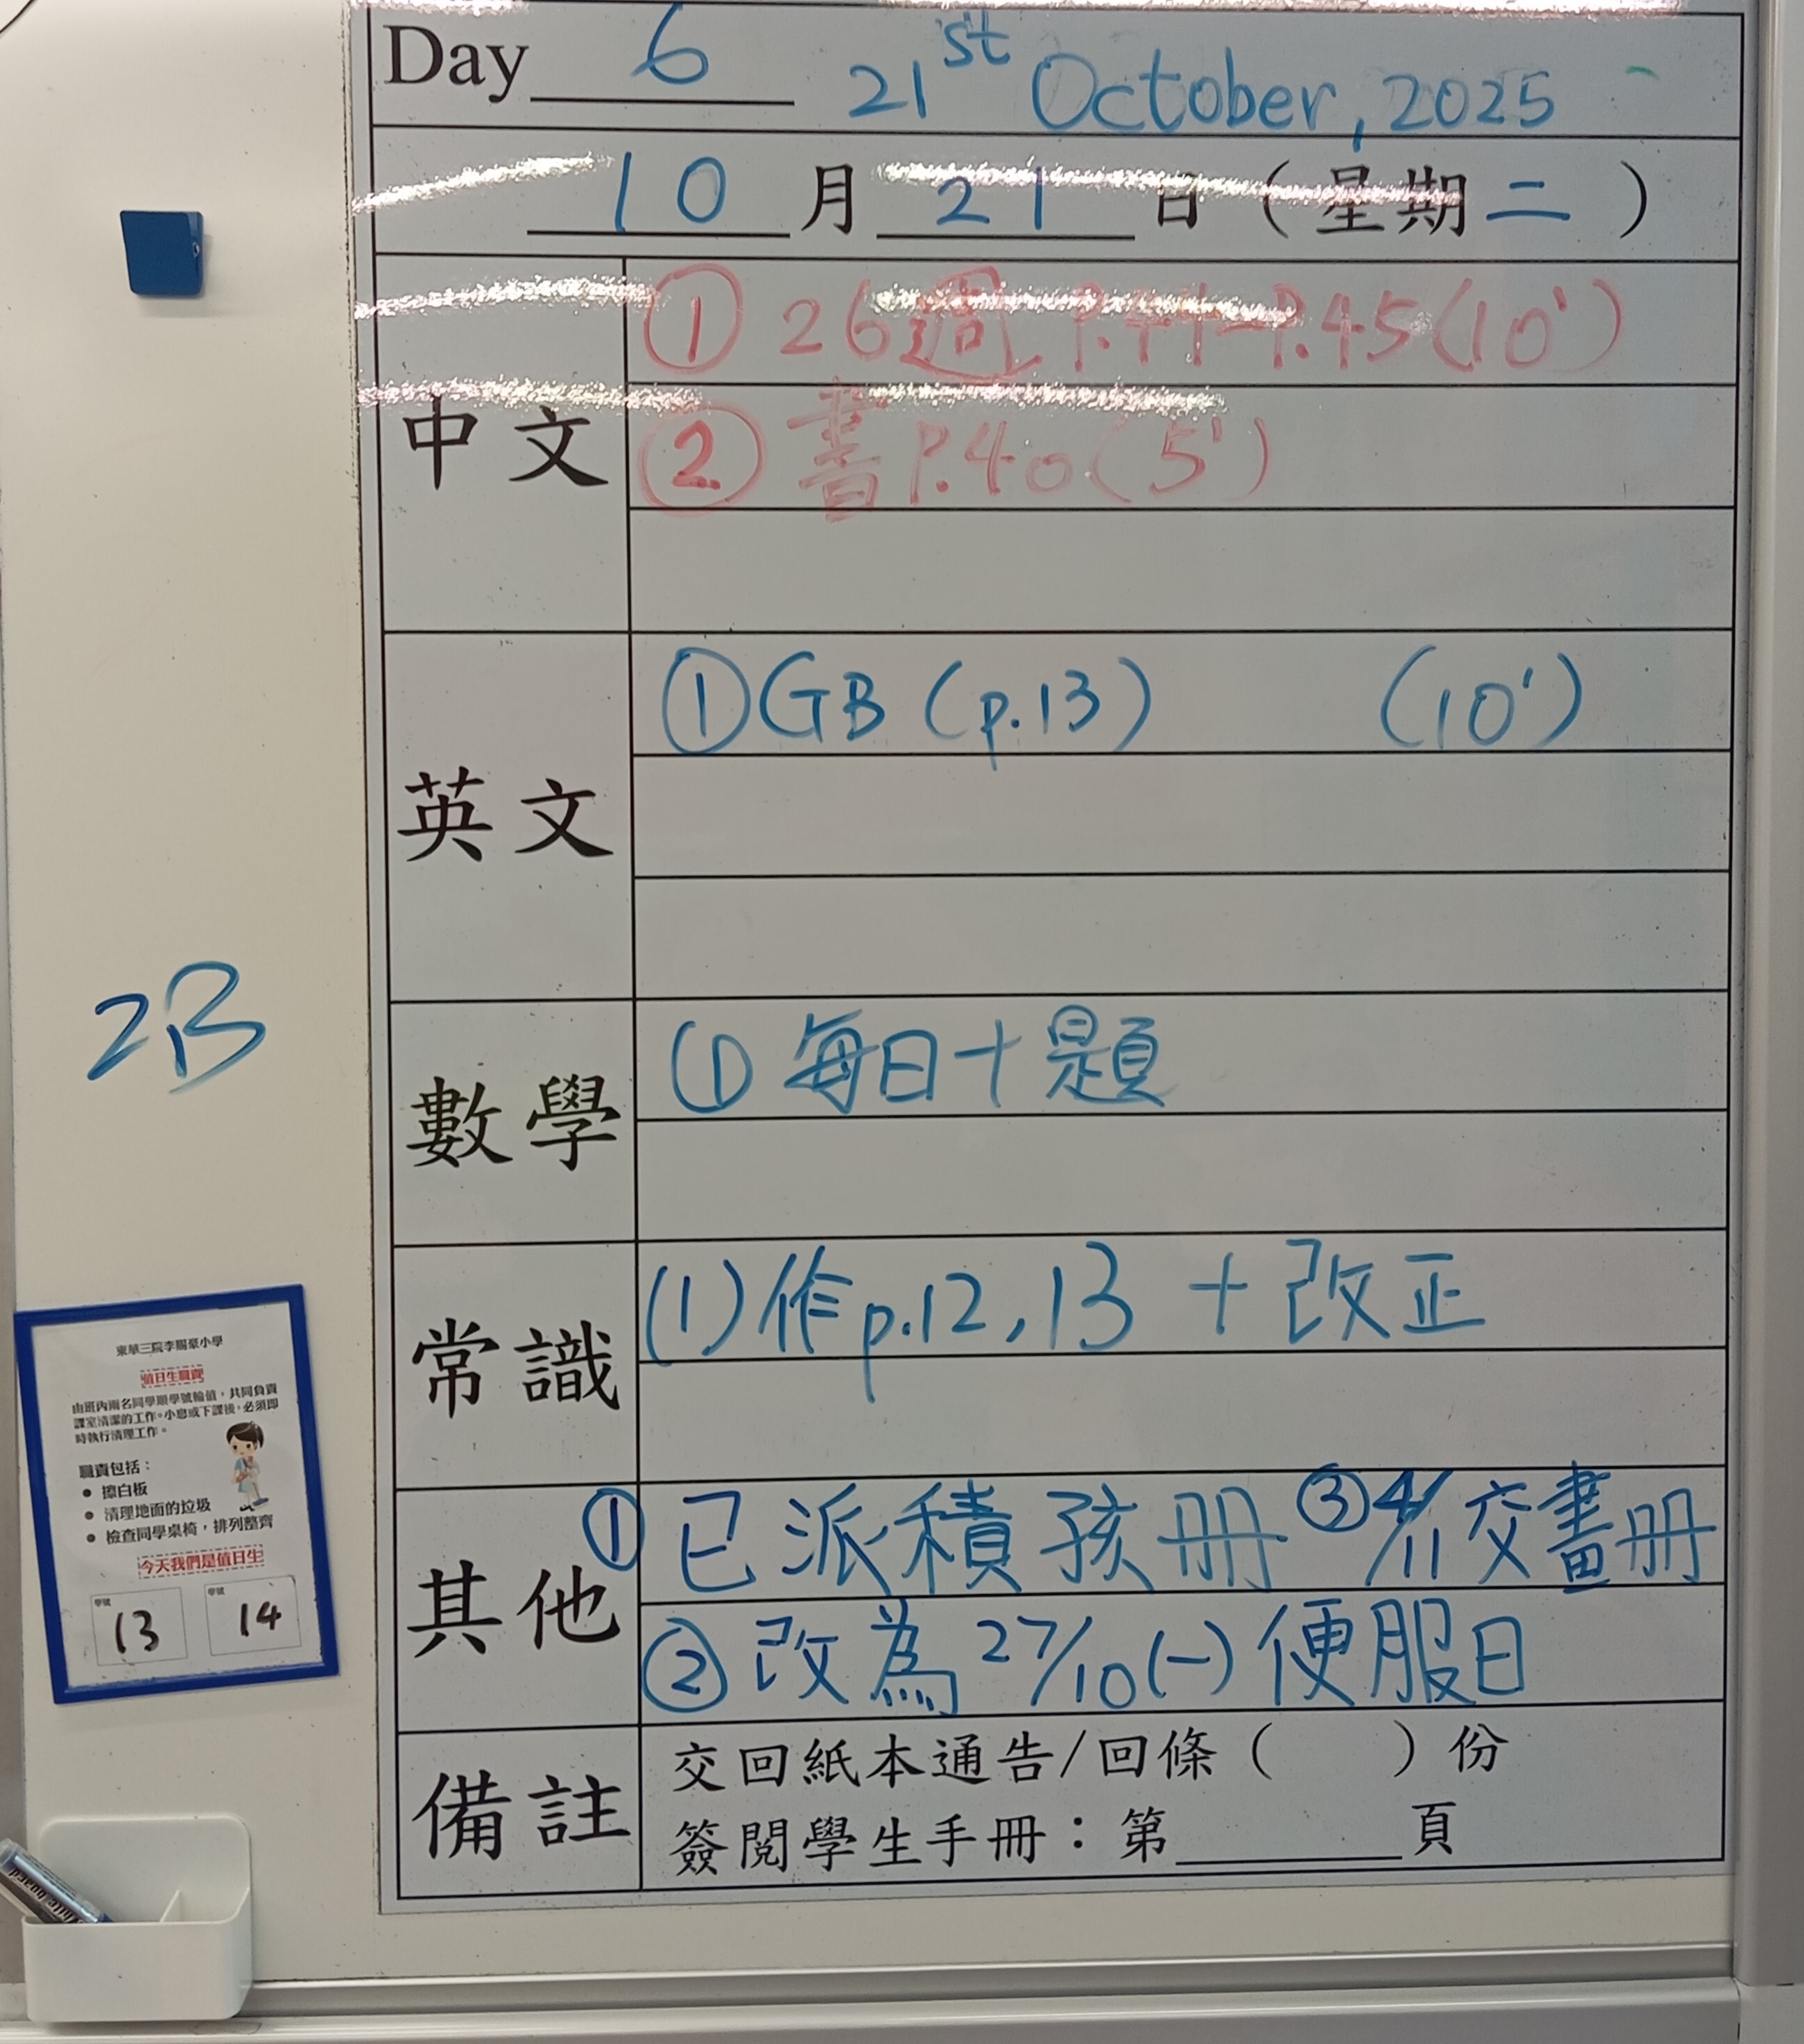 Day 6 21st October, 2025
10 月 21 日 ( 星期二 )
中文
① 26週 P.44-P.45(10')
② 書 P.40(5')
英文
① GB (p.13) (10')
數學
① 每日十題
常識
(1) 作 p.12, 13 + 改正
其他
① 已派積孩冊 ③ 4/11 交畫冊
② 改為 27/10 (一) 便服日
備註
交回紙本通告/回條 ( ) 份
簽閱學生手冊：第______頁
2B
東華三院李賜豪小學
值日生職責
由班內兩名同學順學號輪值，共同負責
課室清潔的工作。小息或下課後，必須即
時執行清理工作。
職責包括：
• 擦白板
• 清理地面的垃圾
• 檢查同學桌椅，排列整齊
今天我們是值日生
學號 學號
13 14